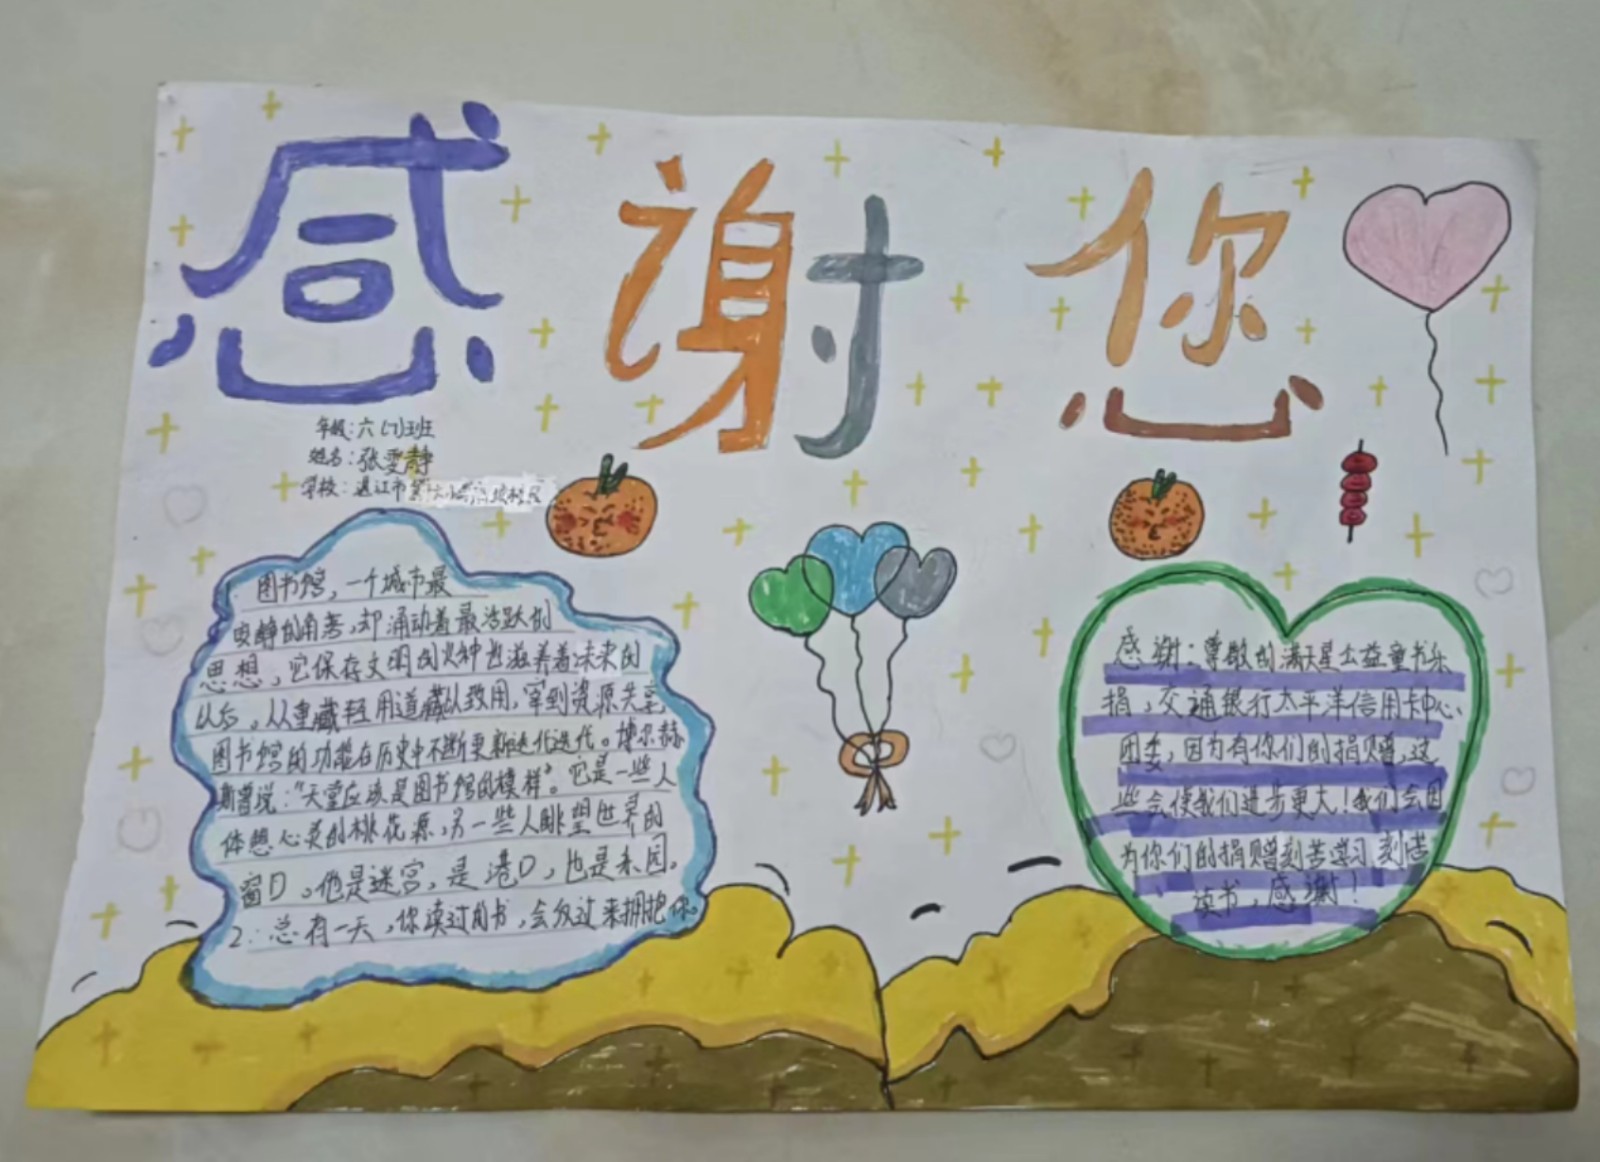 感谢您
年级:六(7)班
姓名:张雯静
学校:湛江市
图书馆,一个城市最
安静的角落,却涌动着最活跃的
思想,它保存文明的火种也滋养着未来的
以后。从重藏轻用道藏以致用,宰到资源共享,
图书馆的功能在历史中不断更新迭代迭代。博尔赫
斯曾说:“天堂应该是图书馆的模样”。它是一些人
体想心灵的桃花源,另一些人眺望世界的
窗口,他是迷宫,是港口,也是乐园。
2:总有一天,你读过的书,会反过来拥抱你
感谢:尊敬的满天星公益童书乐
捐,交通银行太平洋信用卡中心
团委,因为有你们的捐赠,这
些会使我们进步更大!我们会因
为你们的捐赠刻苦学习,刻苦
读书,感谢!